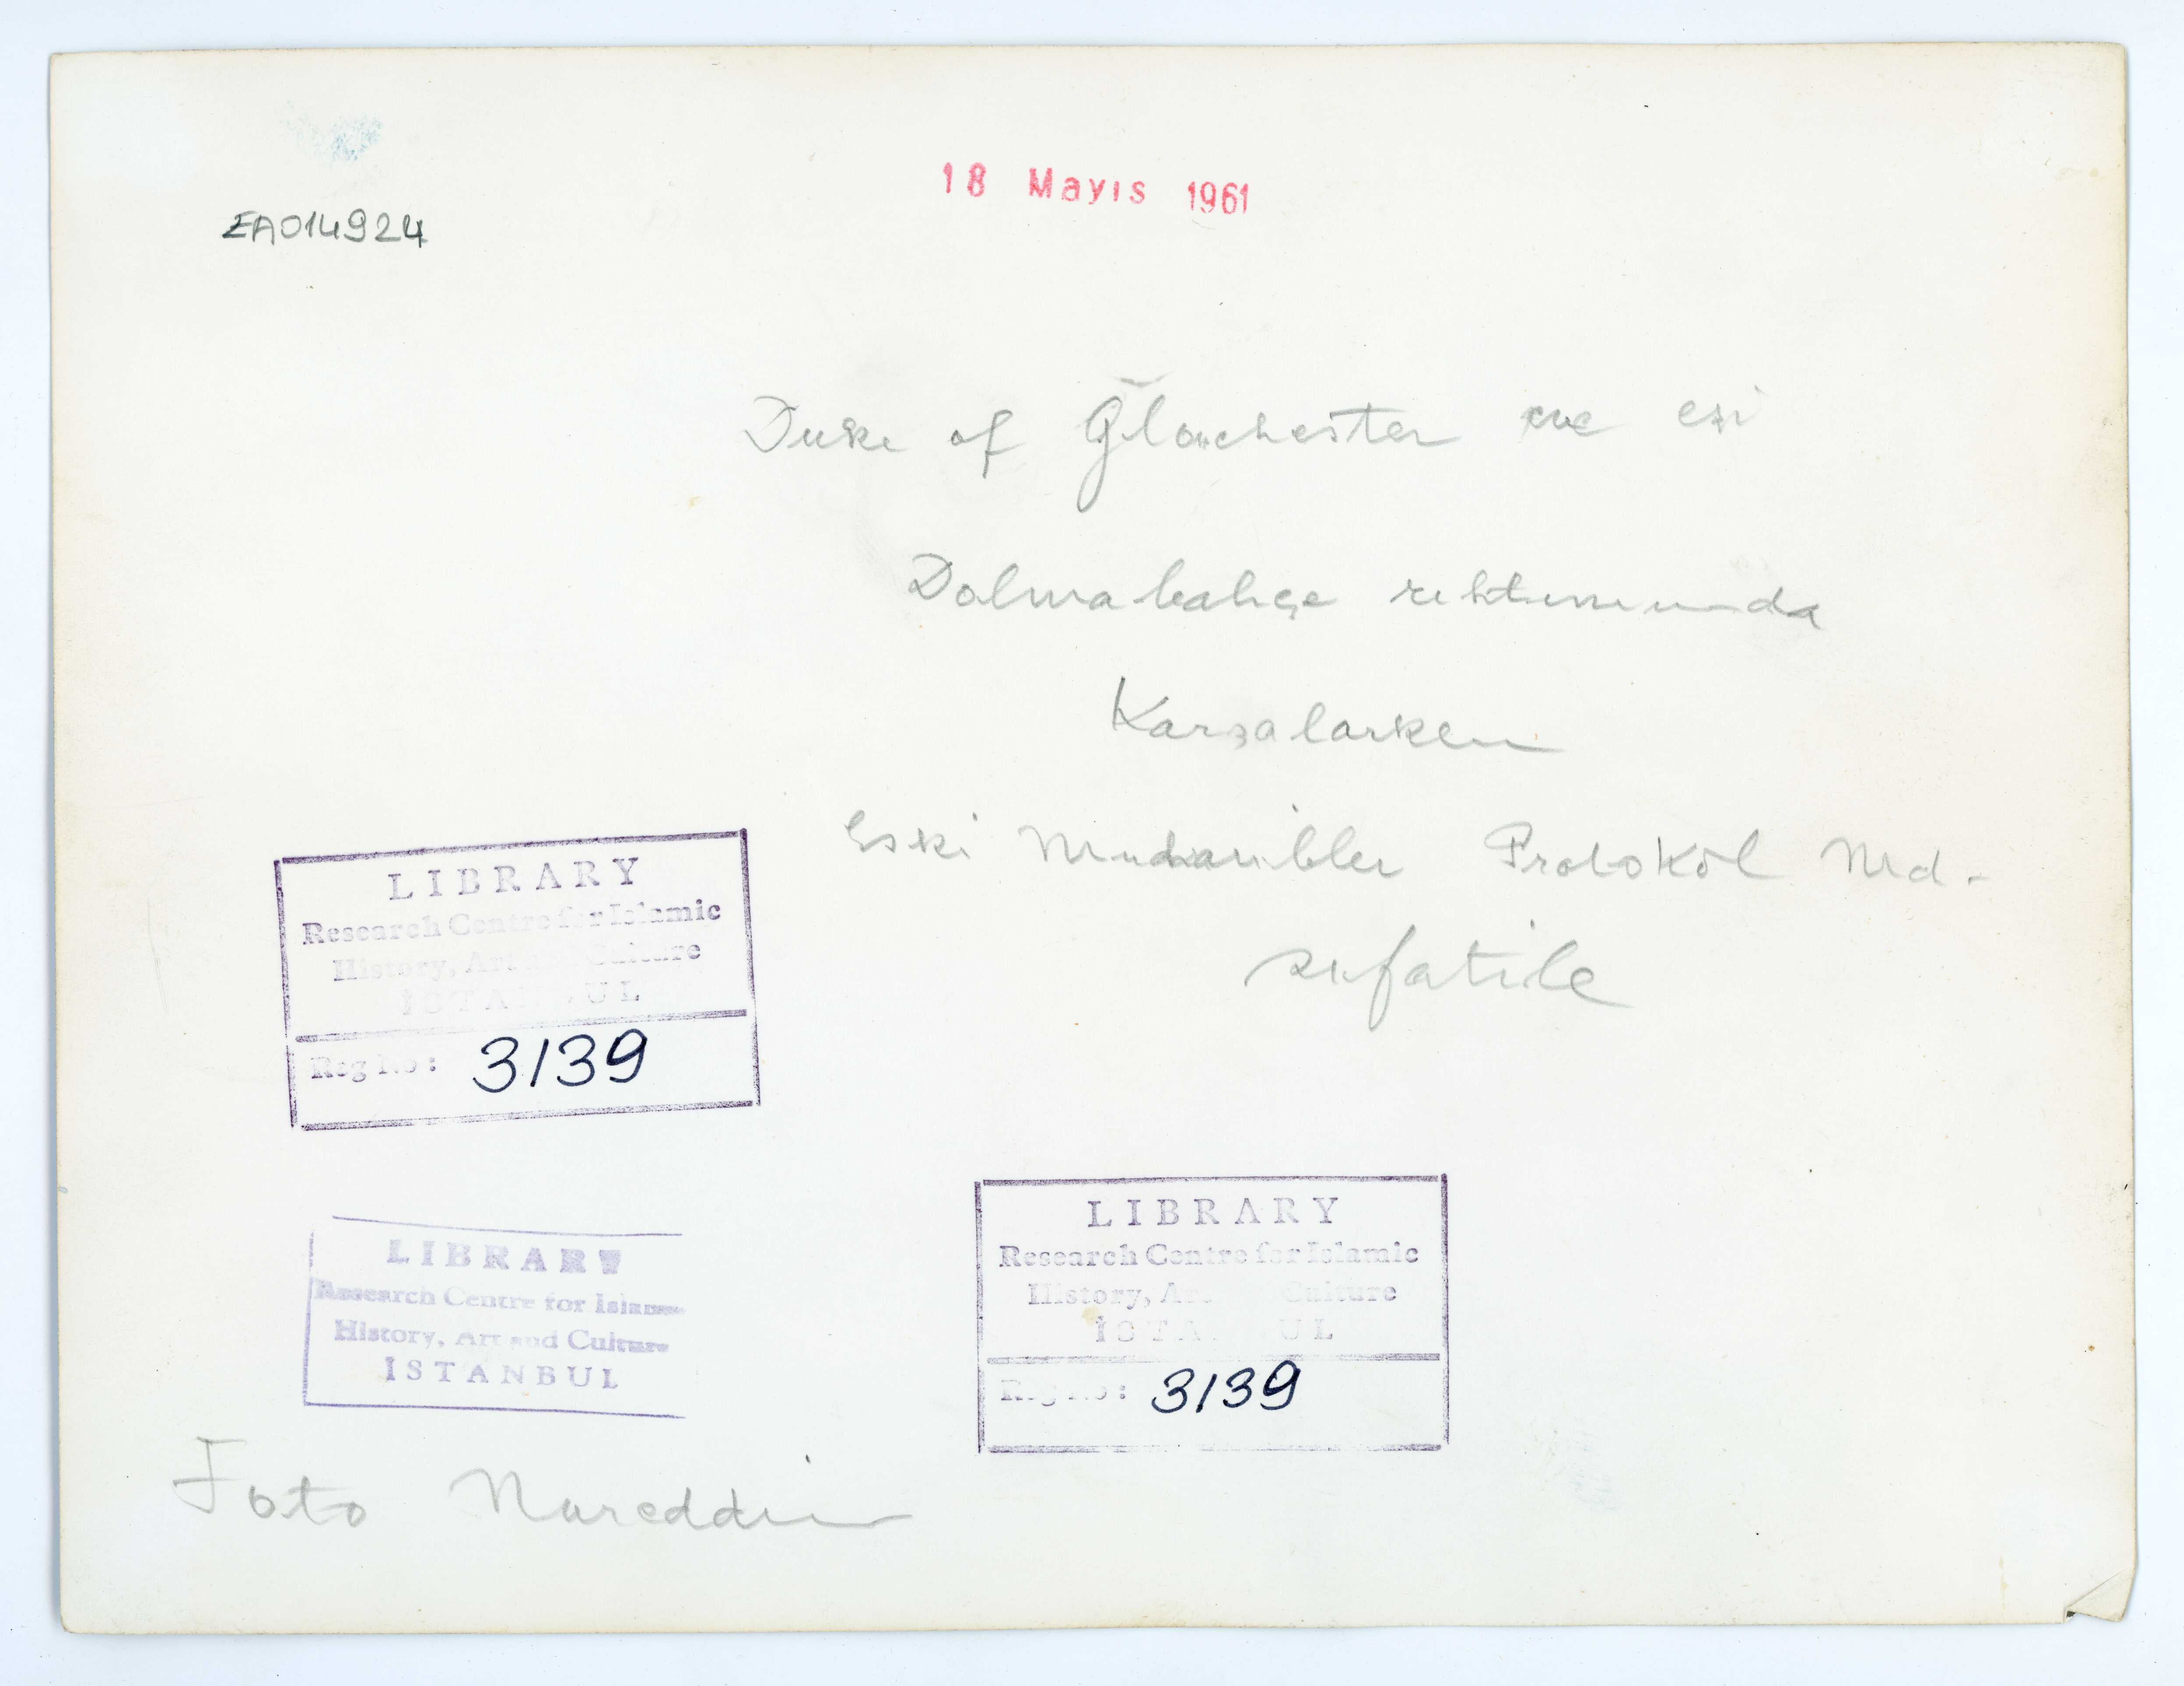 18 Mayıs 1961
EA014924
Duke of Glouchester ve eşi
Dolmabahçe rıhtımında
Karşılarken
Eski Muharibler Protokol Md.
sıfatile
LIBRARY
Research Centre for Islamic
History, Art and Culture
ISTANBUL
Reg No: 3139
LIBRARY
Research Centre for Islamic
History, Art and Culture
İSTANBUL
LIBRARY
Research Centre for Islamic
History, Art and Culture
ISTANBUL
Reg No: 3139
Foto Nureddin